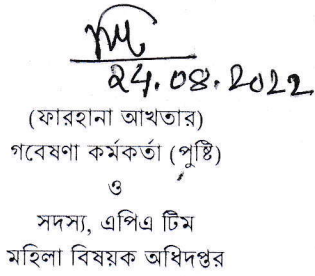 ২৪.০৮.২০২২
(ফারহানা আখতার)
গবেষণা কর্মকর্তা (পুষ্টি)
ও
সদস্য, এপিএ টিম
মহিলা বিষয়ক অধিদপ্তর